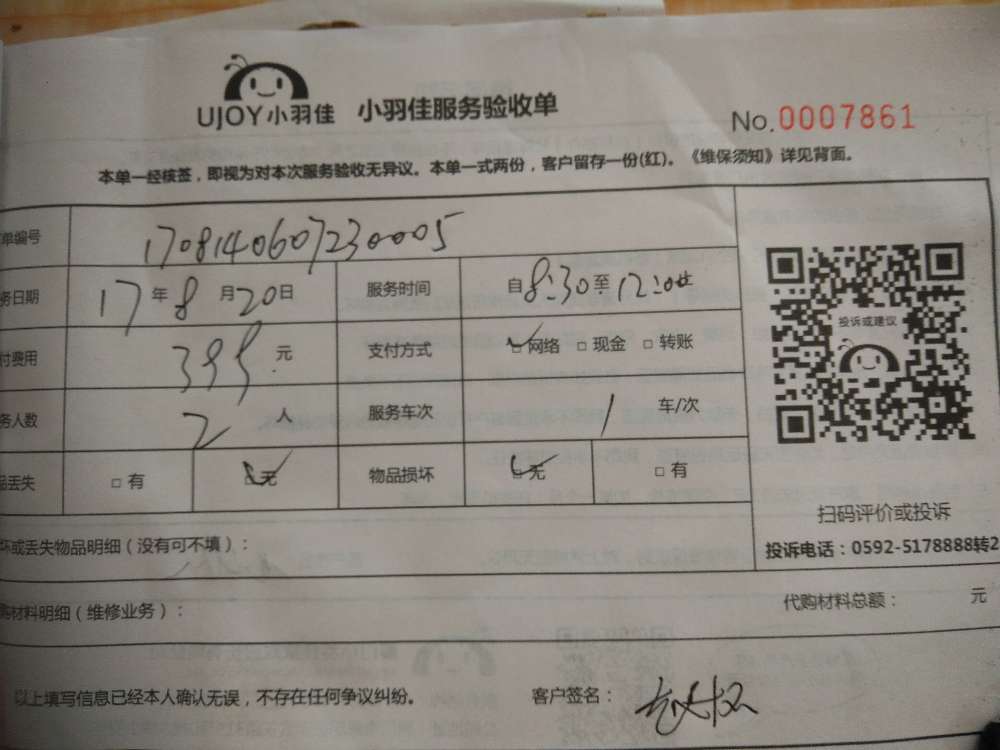 UJOY小羽佳 小羽佳服务验收单
No.0007861
本单一经核签，即视为对本次服务验收无异议。本单一式两份，客户留存一份(红)。《维保须知》详见背面。
单编号 1708140607230005
务日期 17年8月20日 服务时间 自8:30至12:00
付费用 399元 支付方式 □网络 □现金 □转账
务人数 2人 服务车次 1车/次
品丢失 □有 □无 物品损坏 □无 □有
投诉或建议
扫码评价或投诉
投诉电话：0592-5178888转2
坏或丢失物品明细（没有可不填）：
购材料明细（维修业务）： 代购材料总额： 元
以上填写信息已经本人确认无误，不存在任何争议纠纷。 客户签名：